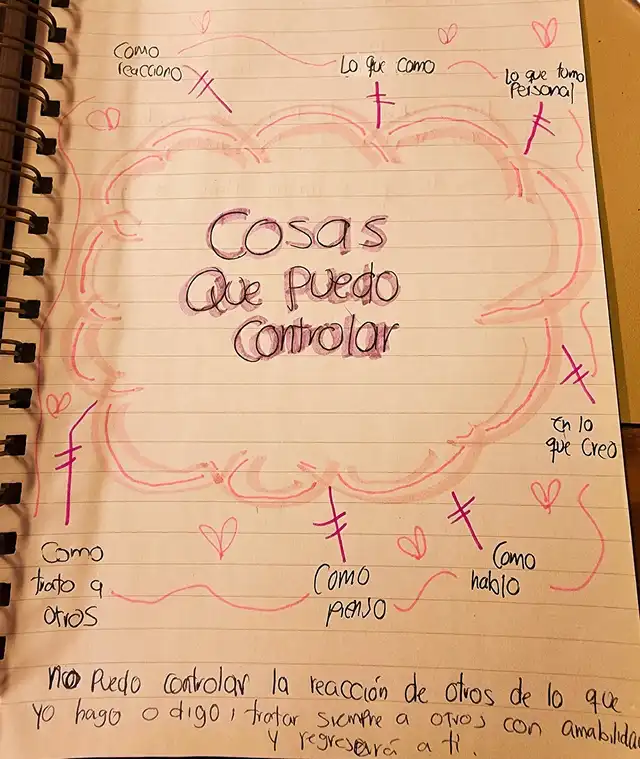 Como
reacciono
Lo que como
Lo que tomo
Personal
Cosas
Que Puedo
Controlar
En lo
que creo
Como
hablo
Como
pienso
Como
trato a
otros
no Puedo controlar la reacción de otros de lo que
yo hago o digo, tratar siempre a otros con amabilidad
y regresará a ti.